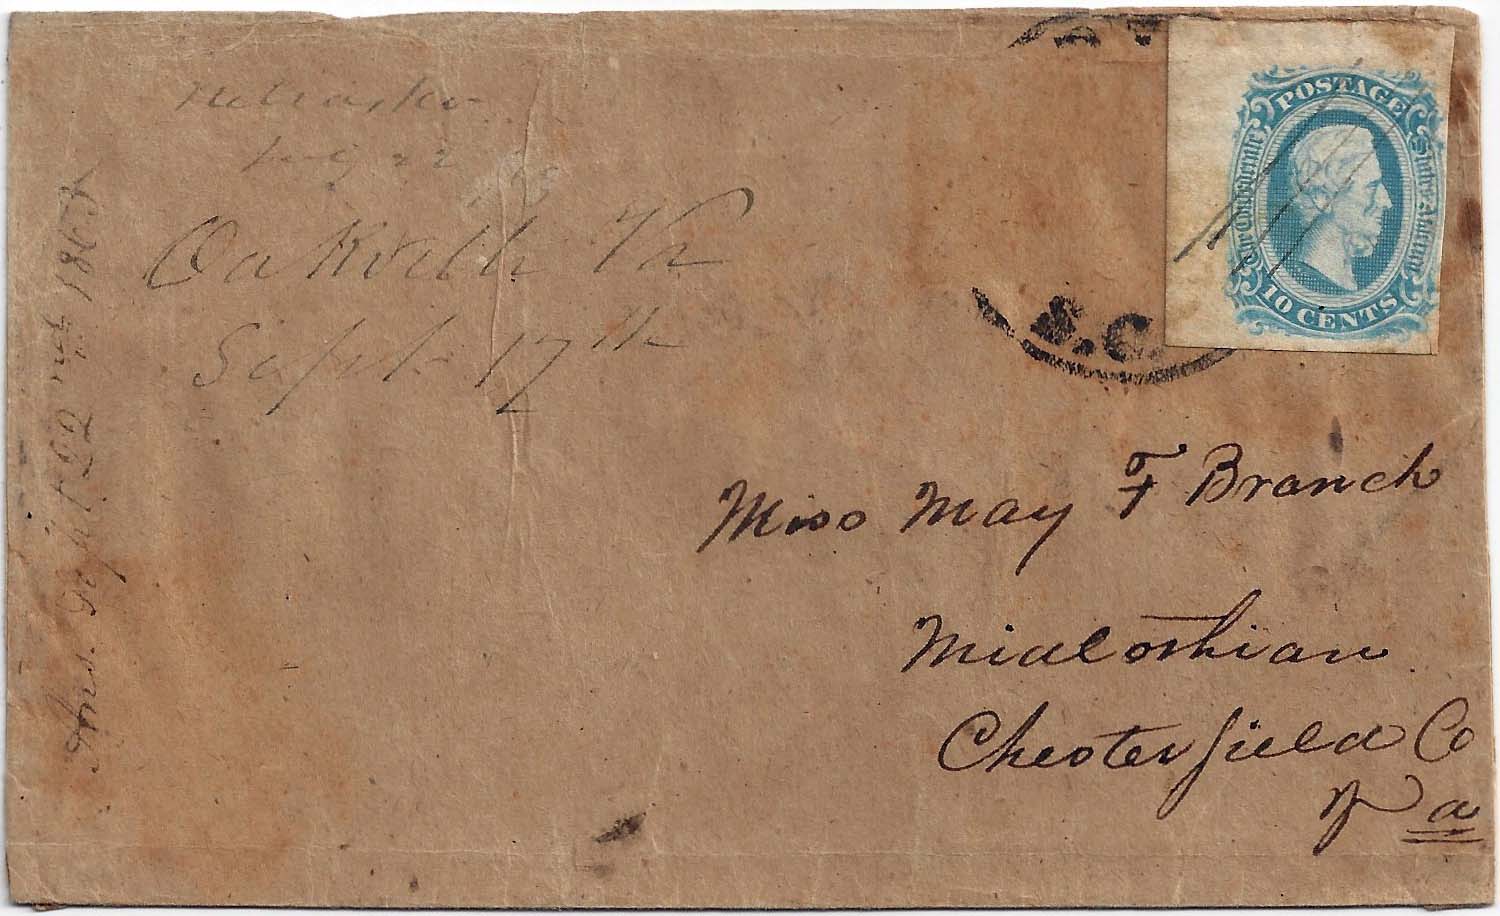 Oakvill Va
Sept. 17th
Ans. Sept 1863
S.C.
POSTAGE
The Confederate States of America
10 CENTS
Miss May F Branch
Midlothian
Chesterfield Co
Va